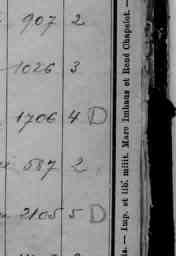 907 2
1026 3
1706 4 D
587 2
2105 5 D
Imp. et lib. milit. Marc Imhaus et René Chapelot. —